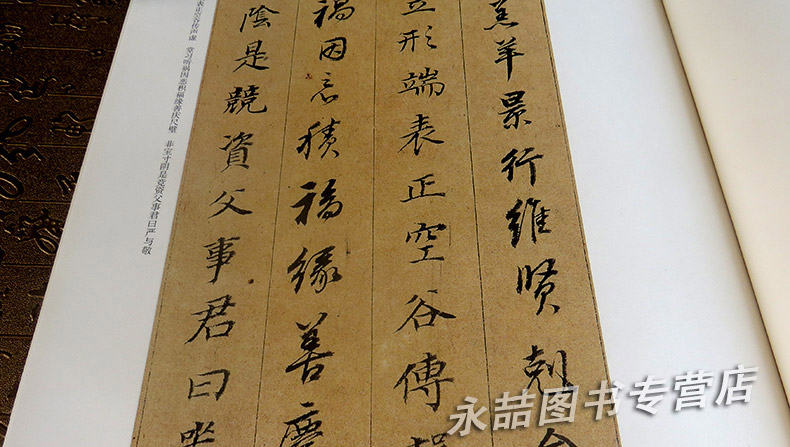 羔羊景行維賢剋念
立形端表正空谷傳
禍因惡積福緣善慶
陰是競資父事君曰嚴
表正空谷传声虚 堂习听祸因恶积福缘善庆尺璧 非宝寸阴是竞资父事君曰严与敬
永喆图书专营店